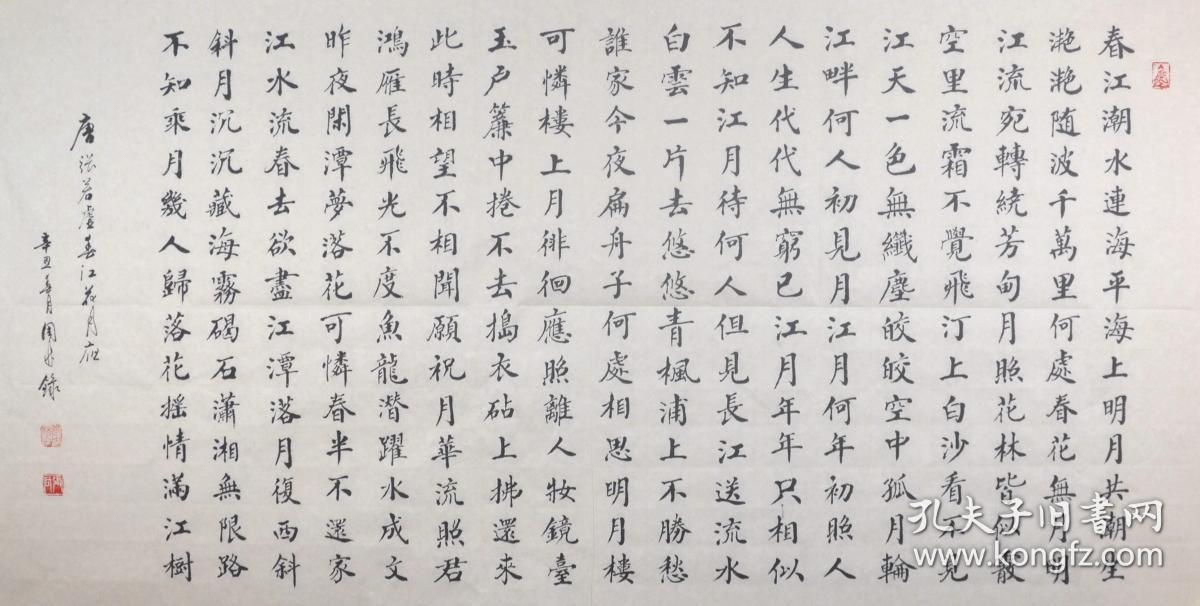 春江潮水連海平海上明月共潮生
滟滟随波千萬里何處春花無月明
江流宛轉繞芳甸月照花林皆似霰
空里流霜不覺飛汀上白沙看不見
江天一色無纖塵皎皎空中孤月輪
江畔何人初見月江月何年初照人
人生代代無窮已江月年年只相似
不知江月待何人但見長江送流水
白雲一片去悠悠青楓浦上不勝愁
誰家今夜扁舟子何處相思明月樓
可憐樓上月徘徊應照離人妝鏡臺
玉户簾中捲不去搗衣砧上拂還來
此時相望不相聞願祝月華流照君
鴻雁長飛光不度魚龍潛躍水成文
昨夜閑潭夢落花可憐春半不還家
江水流春去欲盡江潭落月復西斜
斜月沉沉藏海霧碣石瀟湘無限路
不知乘月幾人歸落花摇情滿江樹
唐張若虛春江花月夜
辛丑春月周錄
孔夫子旧書网
www.kongfz.com